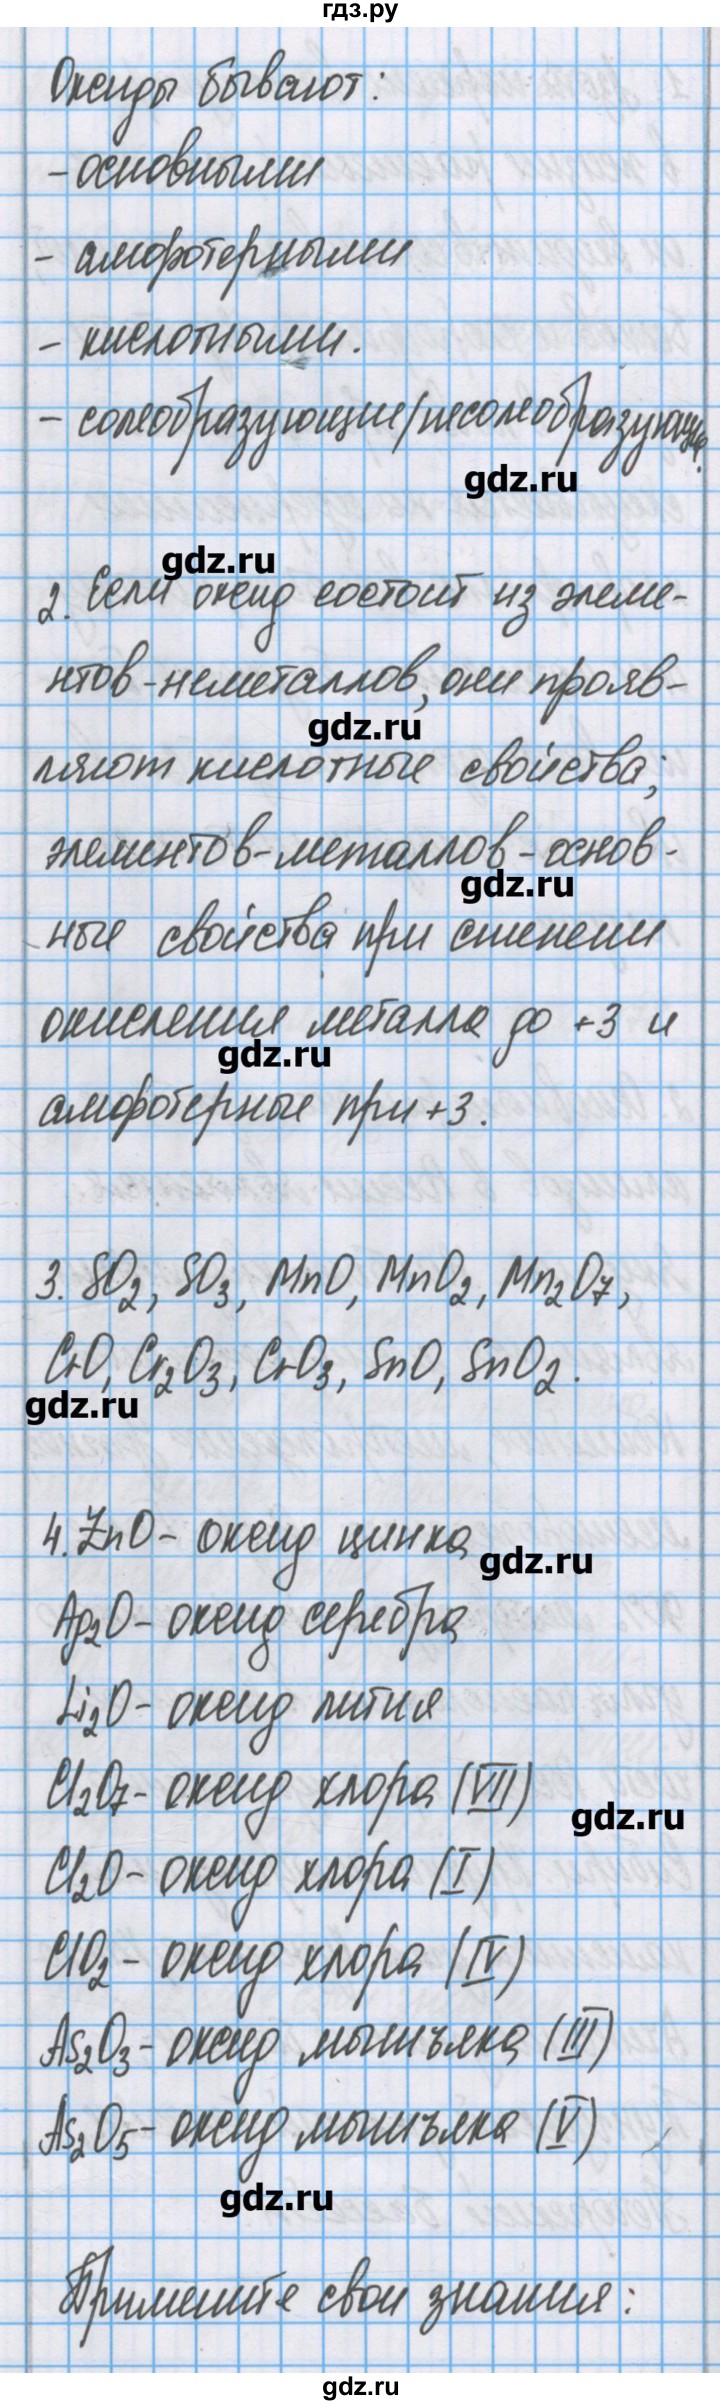 гдз.ру
Оксиды бывают:
- основными
- амфотерными
- кислотными.
- солеобразующие/несолеобразующие.
gdz.ru
gdz.ru
2. Если оксид состоит из элеме-
нтов-неметаллов, они прояв-
gdz.ru
ляют кислотные свойства;
элементов-металлов-основ-
gdz.ru
ные свойства при степени
окисления металла до +3 и
gdz.ru
амфотерные при +3.
3. SO2, SO3, MnO, MnO2, Mn2O7,
CrO, Cr2O3, CrO3, SnO, SnO2.
gdz.ru
4. ZnO - оксид цинка
gdz.ru
Ag2O - оксид серебра
Li2O - оксид лития
Cl2O7 - оксид хлора (VII)
gdz.ru
Cl2O - оксид хлора (I)
ClO2 - оксид хлора (IV)
As2O3 - оксид мышъяка (III)
As2O5 - оксид мышъяка (V)
gdz.ru
Примените свои знания:
gdz.ru